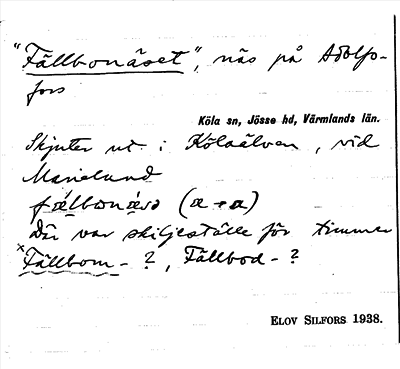 "Fällbonäset", näs på Adolfs-
fors
Köla sn, Jösse hd, Värmlands län.
Skjuter ut i Kölaälven, vid
Marielund
(a + a)
Där var skiljeställe för timmer
×Fällbom- ?, Fällbod- ?
ELOV SILFORS 1938.